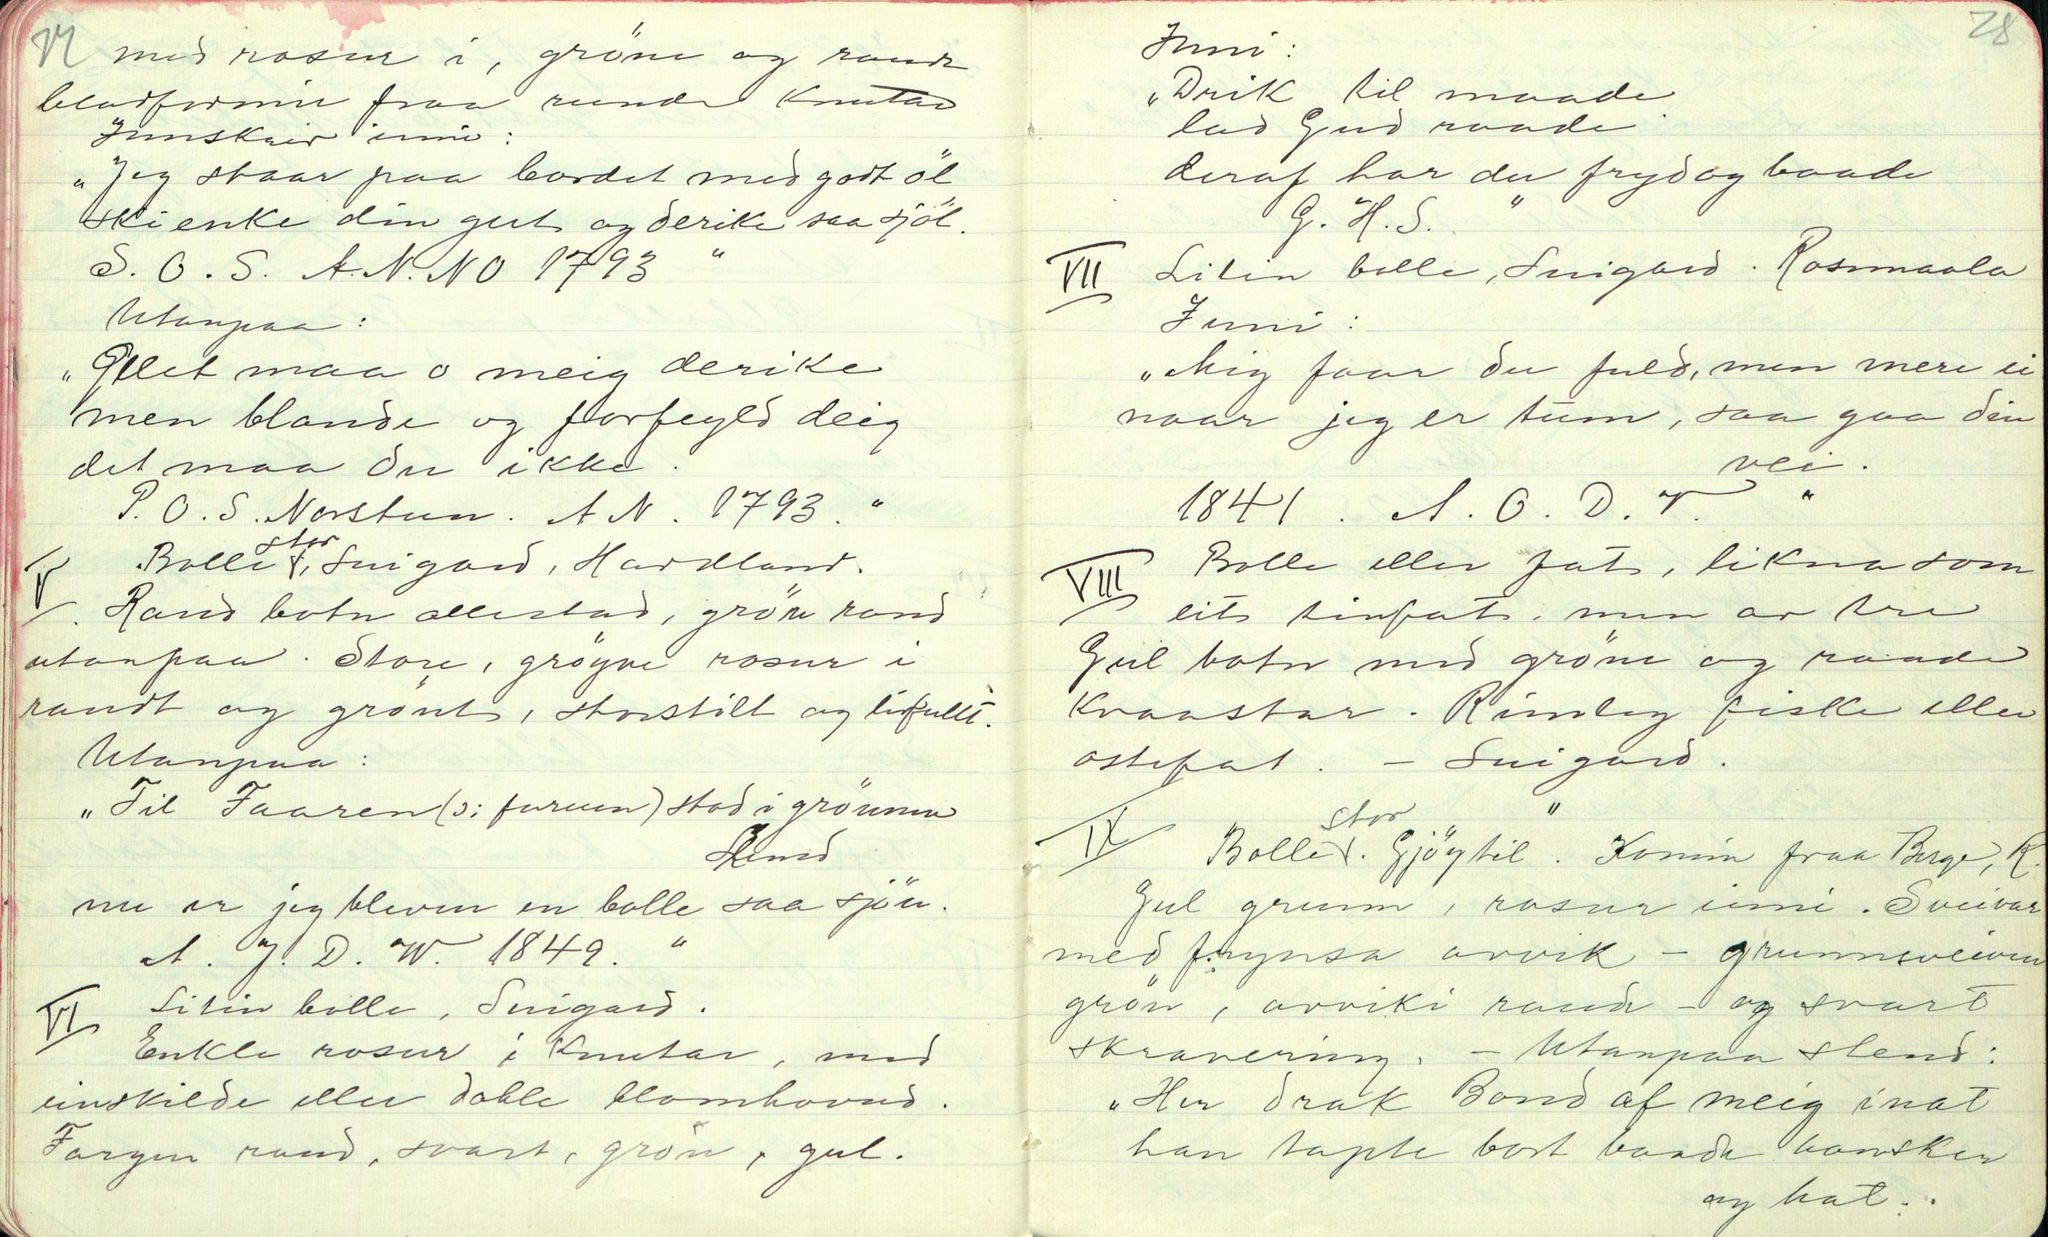 med rosur i, gröne og raude
bladformer fraa runde Knutar
Innskrift inni:
"Jeg staar paa bordet med godt öl
skienke din gut og derike saa sjöl.
S. O. S. A.N.NO 1793 "
Utanpaa:
"Öllet maa o meig derike
men blande og forfeyld deig
det maa du ikke.
P. O. S. Norstuen. A N. 1793. "
V Bolle, stor, Snigard, Hardland.
Raud botn allestad, grön rand
utanpaa. Store, gröyne rosur i
raudt og grönt, storstilt og livfullt.
Utanpaa:
"Til Faaren (ɔ: furuen) stod i grönnen
Lund
nu er jeg bleven en bolle saa sjön.
A. J. D. W. 1849. "
VI Liten bolle, Snigard.
Enkle rosur i Knutar, med
einskilde eller doble blomhovud.
Fargen raud, svart, grön, gul.
28
Inni:
"Drik til maade
lad Gud raade
deraf har du frydog baade
G. H. S. "
VII Liten bolle, Snigard. Rosemaala
Inni:
"Mig faar du fuld, men mere ei
naar jeg er tum, saa gaa din
vei.
1841. A. O. D. V. "
VIII Bolle eller fat, likna som
eit tinfat, men av tre
Gul botn med gröne og raade
Kraastar. Rimeleg fiske eller
ostefat. – Snigard.
IX Bolle, stor. Gjöytil. Komen fraa Berge, R.
Gul grunn, rosur inni. Sveivar
med frynsa arvik – grunnsveiven
grön, arviki raud – og svart
skravering. – Utanpaa stend:
"Her drak Bond af meig inat
han tapte bort baade hansker
og hat.